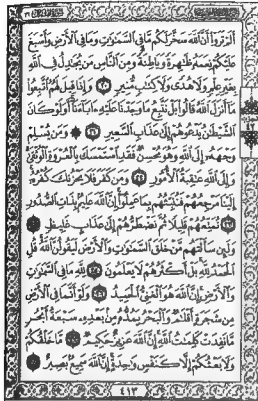 أَلَمْ تَرَوْا أَنَّ ٱللَّهَ سَخَّرَ لَكُم مَّا فِى ٱلسَّمَٰوَٰتِ وَمَا فِى ٱلْأَرْضِ وَأَسْبَغَ
عَلَيْكُمْ نِعَمَهُۥ ظَٰهِرَةً وَبَاطِنَةً وَمِنَ ٱلنَّاسِ مَن يُجَٰدِلُ فِى ٱللَّهِ
بِغَيْرِ عِلْمٍ وَلَا هُدًى وَلَا كِتَٰبٍ مُّنِيرٍ ٢٠ وَإِذَا قِيلَ لَهُمُ ٱتَّبِعُوا۟
مَآ أَنزَلَ ٱللَّهُ قَالُوا۟ بَلْ نَتَّبِعُ مَا وَجَدْنَا عَلَيْهِ ءَابَآءَنَآ أَوَلَوْ كَانَ
ٱلشَّيْطَٰنُ يَدْعُوهُمْ إِلَىٰ عَذَابِ ٱلسَّعِيرِ ٢١ ۞ وَمَن يُسْلِمْ
وَجْهَهُۥٓ إِلَى ٱللَّهِ وَهُوَ مُحْسِنٌ فَقَدِ ٱسْتَمْسَكَ بِٱلْعُرْوَةِ ٱلْوُثْقَىٰ
وَإِلَى ٱللَّهِ عَٰقِبَةُ ٱلْأُمُورِ ٢٢ وَمَن كَفَرَ فَلَا يَحْزُنكَ كُفْرُهُۥٓ
إِلَيْنَا مَرْجِعُهُمْ فَنُنَبِّئُهُم بِمَا عَمِلُوٓا۟ إِنَّ ٱللَّهَ عَلِيمٌۢ بِذَاتِ ٱلصُّدُورِ
٢٣ نُمَتِّعُهُمْ قَلِيلًا ثُمَّ نَضْطَرُّهُمْ إِلَىٰ عَذَابٍ غَلِيظٍ ٢٤
وَلَئِن سَأَلْتَهُم مَّنْ خَلَقَ ٱلسَّمَٰوَٰتِ وَٱلْأَرْضَ لَيَقُولُنَّ ٱللَّهُ قُلِ
ٱلْحَمْدُ لِلَّهِ بَلْ أَكْثَرُهُمْ لَا يَعْلَمُونَ ٢٥ لِلَّهِ مَا فِى ٱلسَّمَٰوَٰتِ
وَٱلْأَرْضِ إِنَّ ٱللَّهَ هُوَ ٱلْغَنِىُّ ٱلْحَمِيدُ ٢٦ وَلَوْ أَنَّمَا فِى ٱلْأَرْضِ
مِن شَجَرَةٍ أَقْلَٰمٌ وَٱلْبَحْرُ يَمُدُّهُۥ مِنۢ بَعْدِهِۦ سَبْعَةُ أَبْحُرٍ
مَّا نَفِدَتْ كَلِمَٰتُ ٱللَّهِ إِنَّ ٱللَّهَ عَزِيزٌ حَكِيمٌ ٢٧ مَّا خَلْقُكُمْ
وَلَا بَعْثُكُمْ إِلَّا كَنَفْسٍ وَٰحِدَةٍ إِنَّ ٱللَّهَ سَمِيعٌۢ بَصِيرٌ ٢٨
٤١٣